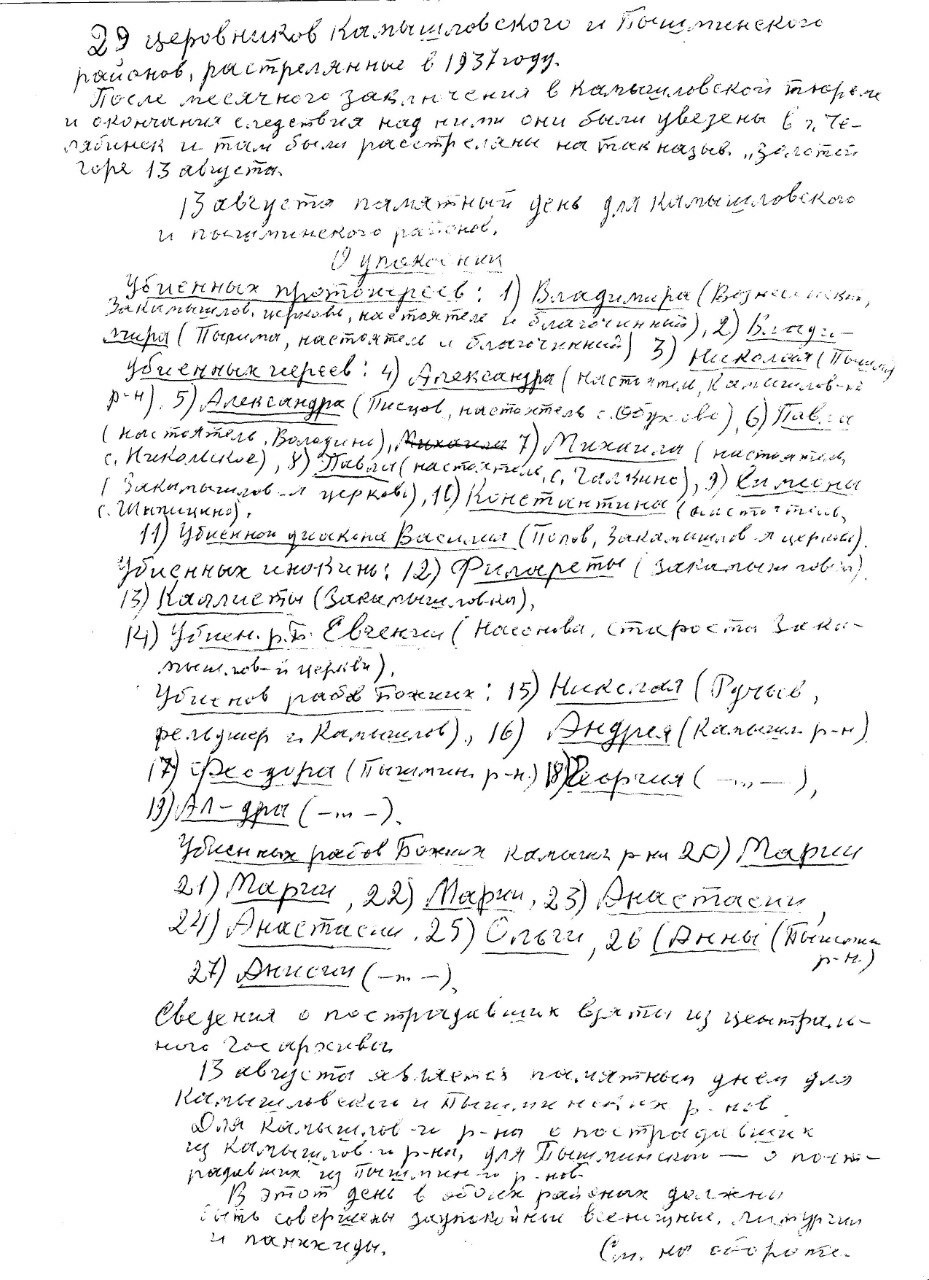 29 церовников Камышловского и Пышминского
районов, растрелянные в 1937 году.
После месячного заключения в Камышловской тюрьме
и окончания следствия над ними они были увезены в г. Че-
лябинск и там были расстреляны на так назыв. „Золотой
горе 13 августа.
13 августа памятный день для Камышловского
и пышминского районов.
О упокоении
Убиенных протоиереев: 1) Владимира (Вознесенский,
Закамышлов. церковь, настоятель и благочинный), 2) Влади-
мира (Пышма, настоятель и благочинный) 3) Николая (Пышма)
Убиенных иереев: 4) Александра (настоятель, Камышлов-го
р-н). 5) Александра (Писцов, настоятель с. Обухово), 6) Павла
(настоятель, Володино), Михаила 7) Михаила (настоятель,
с. Никольское), 8) Павла (настоятель, с. Галкино), 9) Симеона
(Закамышлов-я церковь), 10) Константина (настоятель,
с. Шипицино).
11) Убиенной диакона Василия (Попов, Закамышлов-я церковь).
Убиенных инокинь: 12) Филареты (Закамышловка)
13) Каллисты (Закамышловка),
14) Убиен. р. Б. Евгении (Насонова, староста Зака-
мышлов-й церкви),
Убиенов рабов Божиих: 15) Николая (Ручьев,
фельдшер г. Камышлов), 16) Андрея (Камышл. р-н)
17) Феодора (Пышмин. р-н.) 18) Георгия (—"—),
19) Ал-дры (—"—).
Убиенных рабов Божиих камышл р-на 20) Марии
21) Марии, 22) Марии, 23) Анастасии,
24) Анастасии, 25) Ольги, 26 (Анны (Пышмин
р-н.)
27) Анисии (—"—),
Сведения о пострадавших взяты из централь-
ного Госархива
13 августа является памятным днем для
Камышловского и Пышминских р-нов.
Для Камышлов-го р-на о пострадавших
из Камышлов-го р-на, для Пышминской — о пост-
радавших из Пышмин-го р-нов.
В этот день в обоих районах должны
быть совершены заупокойные всенощные, литургии
и панихиды.
См. на обороте.